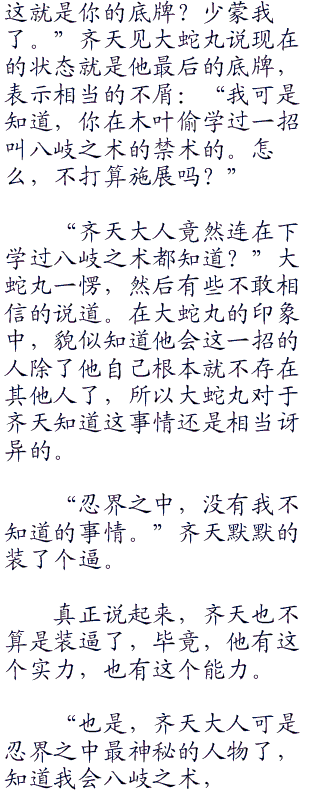 这就是你的底牌？少蒙我
了。”齐天见大蛇丸说现在
的状态就是他最后的底牌，
表示相当的不屑：“我可是
知道，你在木叶偷学过一招
叫八岐之术的禁术的。怎
么，不打算施展吗？”
“齐天大人竟然连在下
学过八岐之术都知道？”大
蛇丸一愣，然后有些不敢相
信的说道。在大蛇丸的印象
中，貌似知道他会这一招的
人除了他自己根本就不存在
其他人了，所以大蛇丸对于
齐天知道这事情还是相当讶
异的。
“忍界之中，没有我不
知道的事情。”齐天默默的
装了个逼。
真正说起来，齐天也不
算是装逼了，毕竟，他有这
个实力，也有这个能力。
“也是，齐天大人可是
忍界之中最神秘的人物了，
知道我会八岐之术，